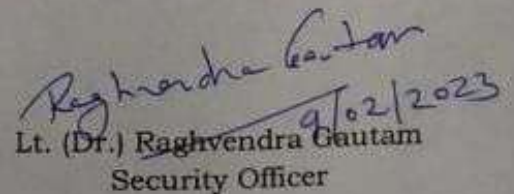 Raghvendra Gautam
9/02/2023
Lt. (Dr.) Raghvendra Gautam
Security Officer